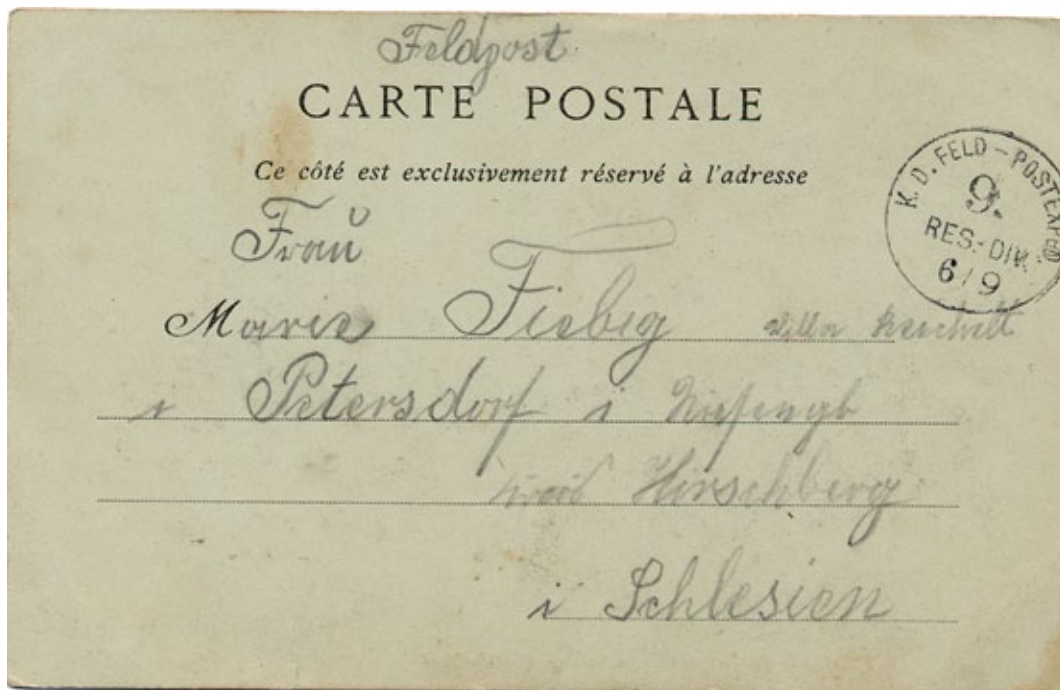 Feldpost
CARTE POSTALE
Ce côté est exclusivement réservé à l'adresse
K. D. FELD-POSTEXPED
9.
RES.-DIV.
6/9
Frau
Marie Fiebig Villa
i Petersdorf i Riesengb
Kreis Hirschberg
i Schlesien